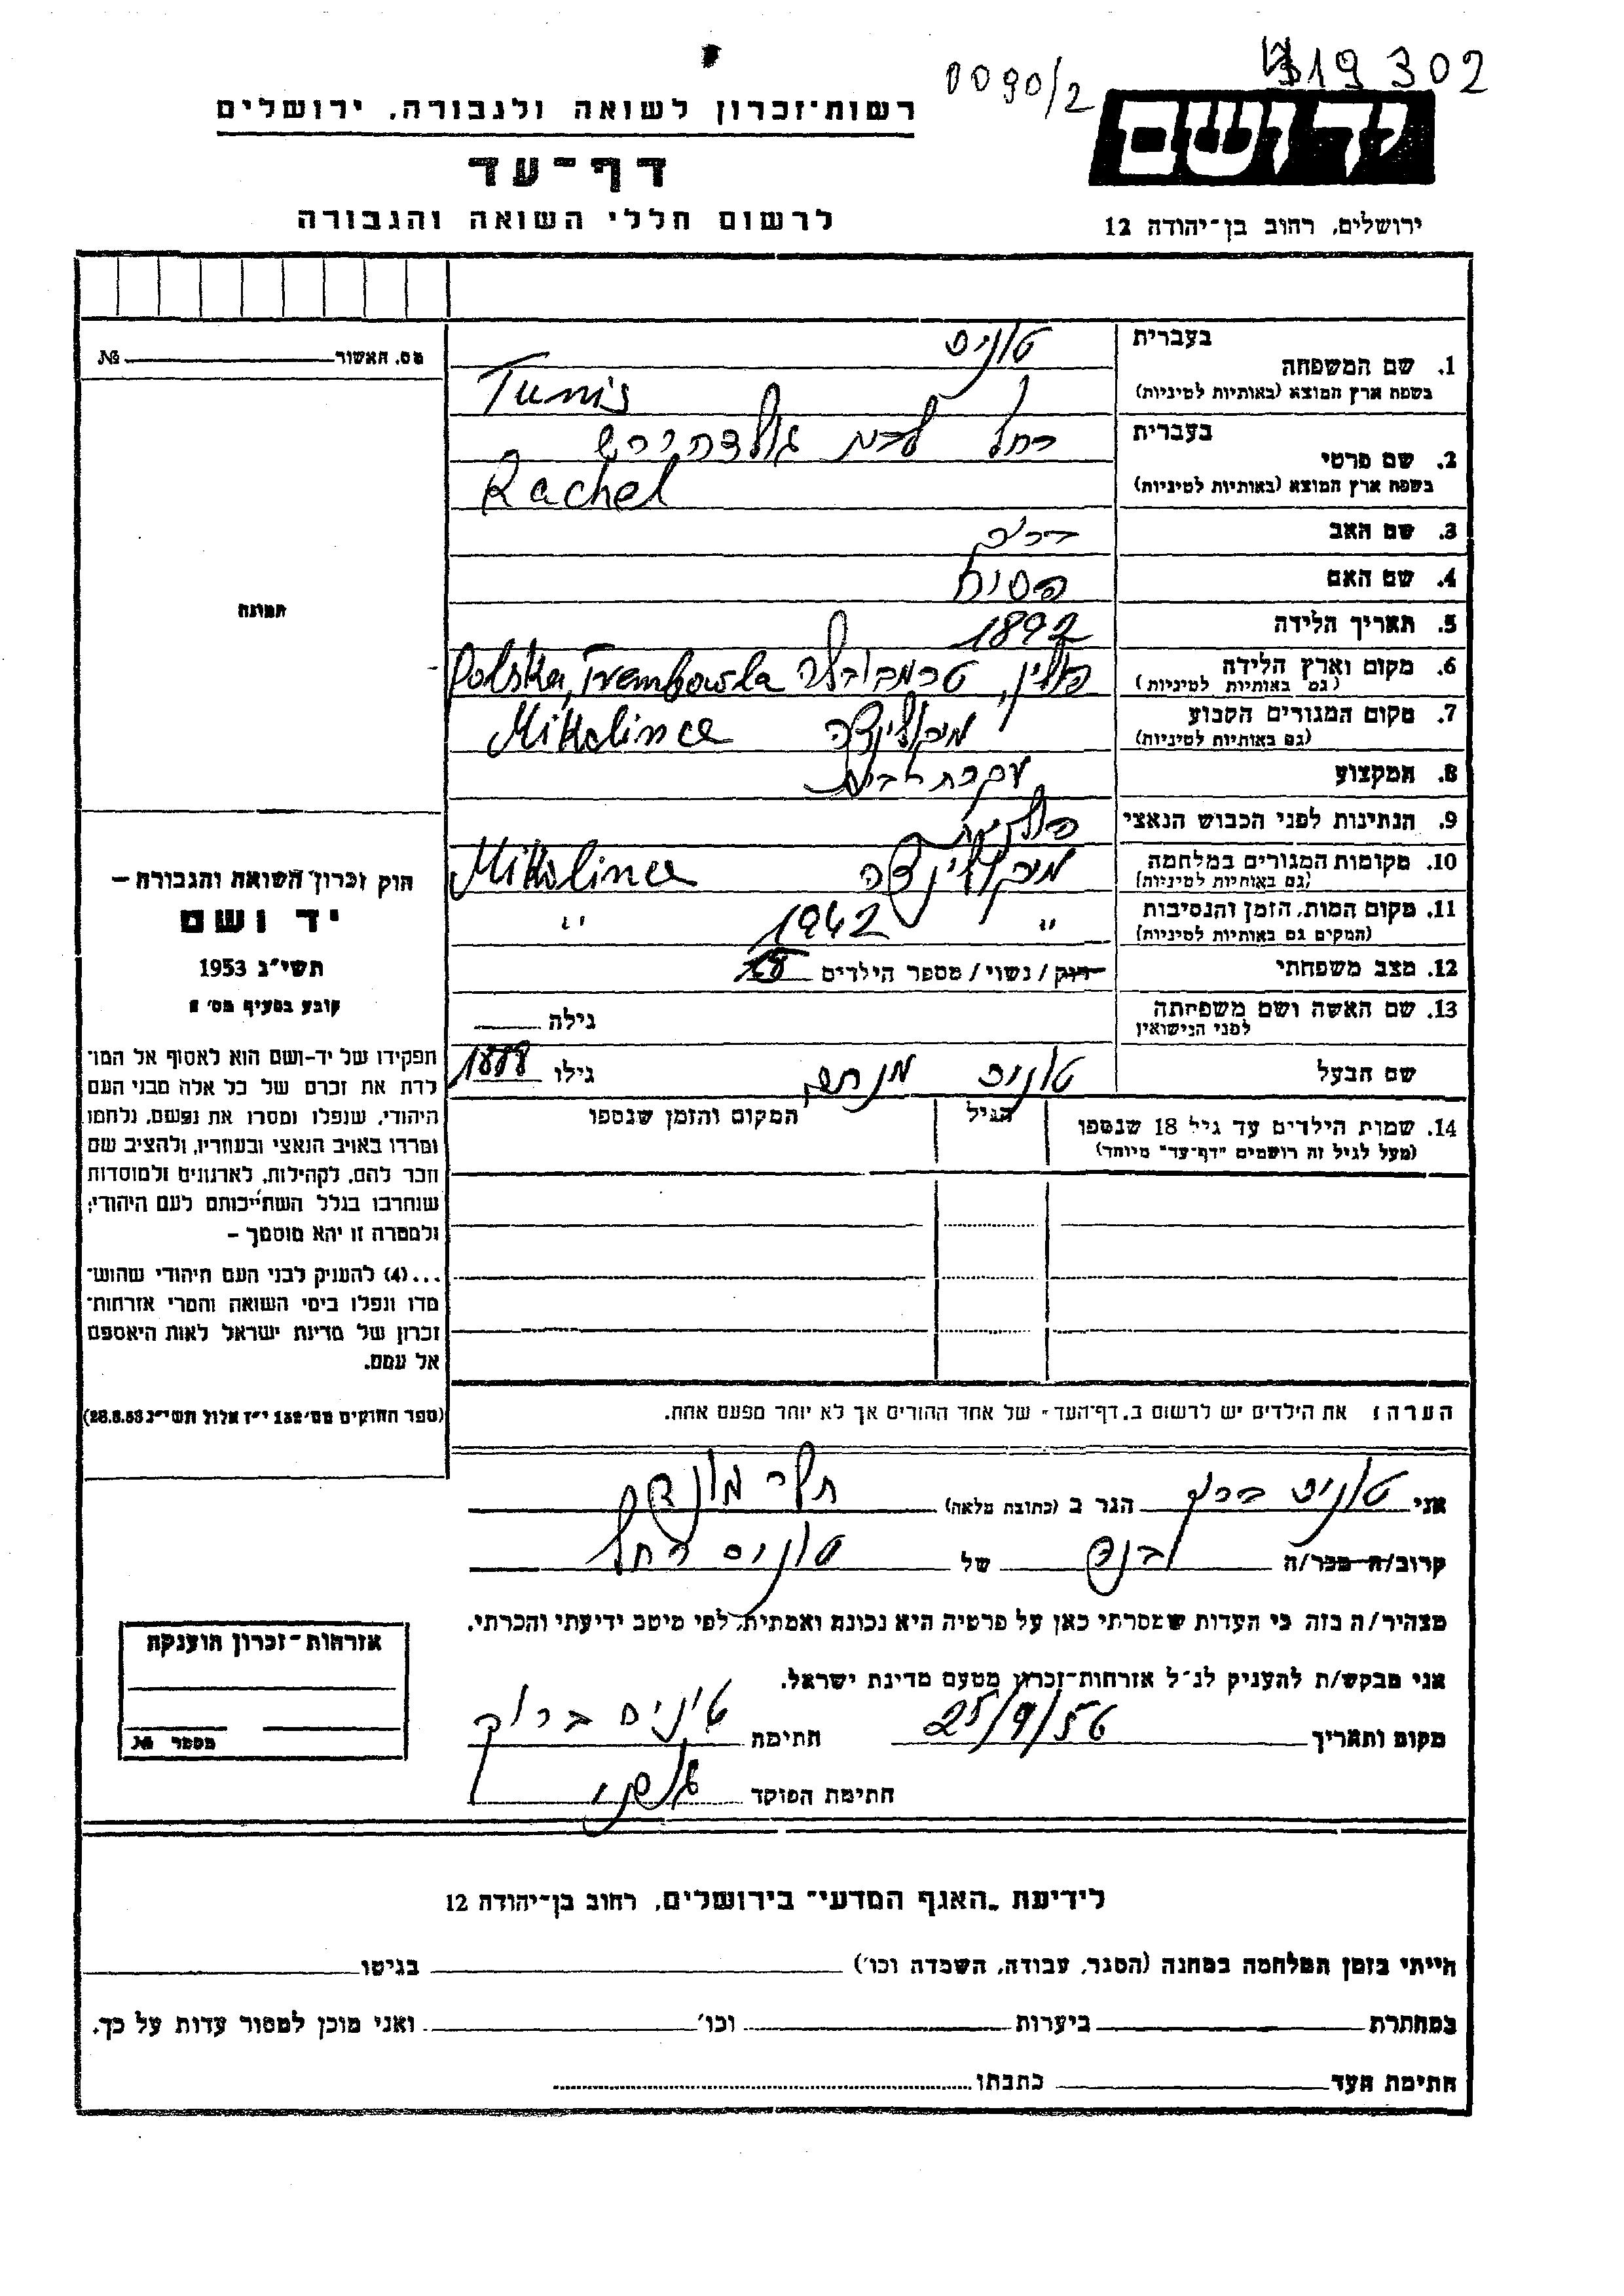 0090/2
319302
רשות־זכרון לשואה ולגבורה, ירושלים
יד ושם
דף־עד
לרשום חללי השואה והגבורה
ירושלים, רחוב בן־יהודה 12
מס. האשור № 
תמונה
חוק זכרון השואה והגבורה –
יד ושם
תשי״ג 1953
קובע בסעיף מס׳ 2
תפקידו של יד-ושם הוא לאסוף אל המו־
לדת את זכרם של כל אלה מבני העם
היהודי, שנפלו ומסרו את נפשם, נלחמו
ומרדו באויב הנאצי ובעוזריו, ולהציב שם
וזכר להם, לקהילות, לארגונים ולמוסדות
שנחרבו בגלל השתייכותם לעם היהודי;
ולמטרה זו יהא מוסמך –
...(4) להעניק לבני העם היהודי שהוש־
מדו ונפלו בימי השואה והמרי אזרחות־
זכרון של מדינת ישראל לאות היאספם
אל עמם.
(ספר החוקים מס׳ 132 י״ז אלול תשי״ג 28.8.53)
בעברית טוניס
1. שם המשפחה
בשפת ארץ המוצא (באותיות לטיניות) Tunis
בעברית רחל לבית גולדהירש
2. שם פרטי
בשפת ארץ המוצא (באותיות לטיניות) Rachel
3. שם האב
4. שם האם
5. תאריך הלידה 1892
6. מקום וארץ הלידה פולין, טרמבובלה Polska, Trembowla
(גם באותיות לטיניות)
7. מקום המגורים הקבוע מיקולינצה Mikolince
(גם באותיות לטיניות)
8. המקצוע עקרת בית
9. הנתינות לפני הכבוש הנאצי פולנית
10. מקומות המגורים במלחמה מיקולינצה Mikolince
(גם באותיות לטיניות)
11. מקום המות, הזמן והנסיבות ״ 1942 ״
(המקום גם באותיות לטיניות)
12. מצב משפחתי רווק / נשוי / מספר הילדים
13. שם האשה ושם משפחתה
לפני הנישואין
גילה
שם הבעל טוניס מנחם גילו 1888
14. שמות הילדים עד גיל 18 שנספו
(מעל לגיל זה רושמים "דף־עד" מיוחד)
הגיל
המקום והזמן שנספו
הערה: את הילדים יש לרשום ב„דף־העד״ של אחד ההורים אך לא יותר מפעם אחת.
אני טוניס ברוך הגר ב (כתובת מלאה) תל מונד
קרוב/ה מכר/ה בנה של טוניס רחל
מצהיר/ה בזה כי העדות שמסרתי כאן על פרטיה היא נכונה ואמתית, לפי מיטב ידיעתי והכרתי.
אני מבקש/ת להעניק לנ״ל אזרחות־זכרון מטעם מדינת ישראל.
מקום ותאריך 25/9/56 חתימה טוניס ברוך
חתימת הפוקד
אזרחות־זכרון הוענקה
מספר №
לידיעת „האגף המדעי״ בירושלים, רחוב בן־יהודה 12
הייתי בזמן המלחמה במחנה (הסגר, עבודה, השמדה וכו׳) בגיטו
במחתרת ביערות וכו׳ ואני מוכן למסור עדות על כך.
חתימת העד כתבתו